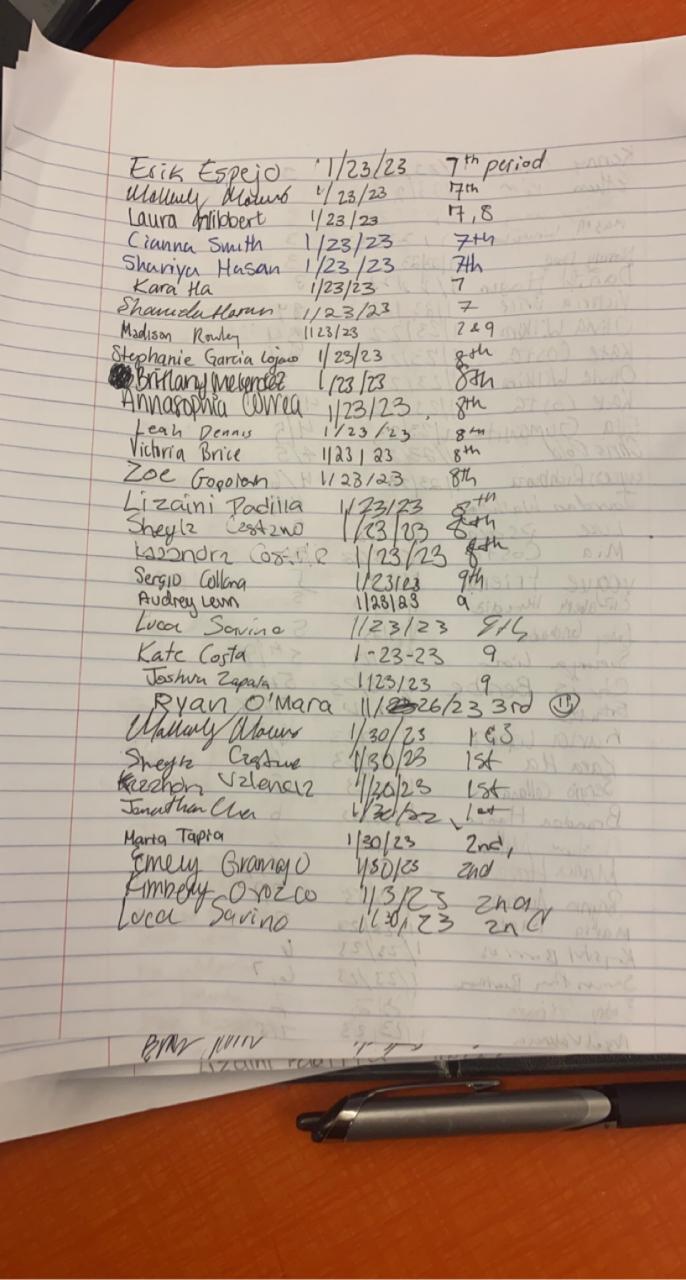 Erik Espejo 1/23/23 7th period
1/23/23 7th
Laura Hibbert 1/23/23 7,8
Cianna Smith 1/23/23 7th
Shariya Hasan 1/23/23 7th
Kara Ha 1/23/23 7
1/23/23 7
Madison Rowley 1/23/23 2 & 9
Stephanie Garcia 1/23/23 8th
Brittany Melendez 1/23/23 8th
Annasophia Correa 1/23/23 8th
Leah Dennis 1/23/23 8th
Victoria Brice 1/23/23 8th
Zoe 1/23/23 8th
Lizaini Padilla 1/23/23 8th
Sheyla 1/23/23 8th
1/23/23 8th
Sergio 1/23/23 9th
Audrey 1/23/23 9
Luca Savino 1/23/23 9th
Kate Costa 1-23-23 9
Joshua Zapata 1/23/23 9
Ryan O'Mara 26/23 3rd
1/30/23 1 & 3
Sheyla 1/30/23 1st
Valencia 1/30/23 1st
Jonathan 1st
Marta Tapia 1/30/23 2nd,
Emely 1/30/23 2nd
Kimberly Orozco 1/3/23 2nd
Luca Savino 1/30/23 2nd